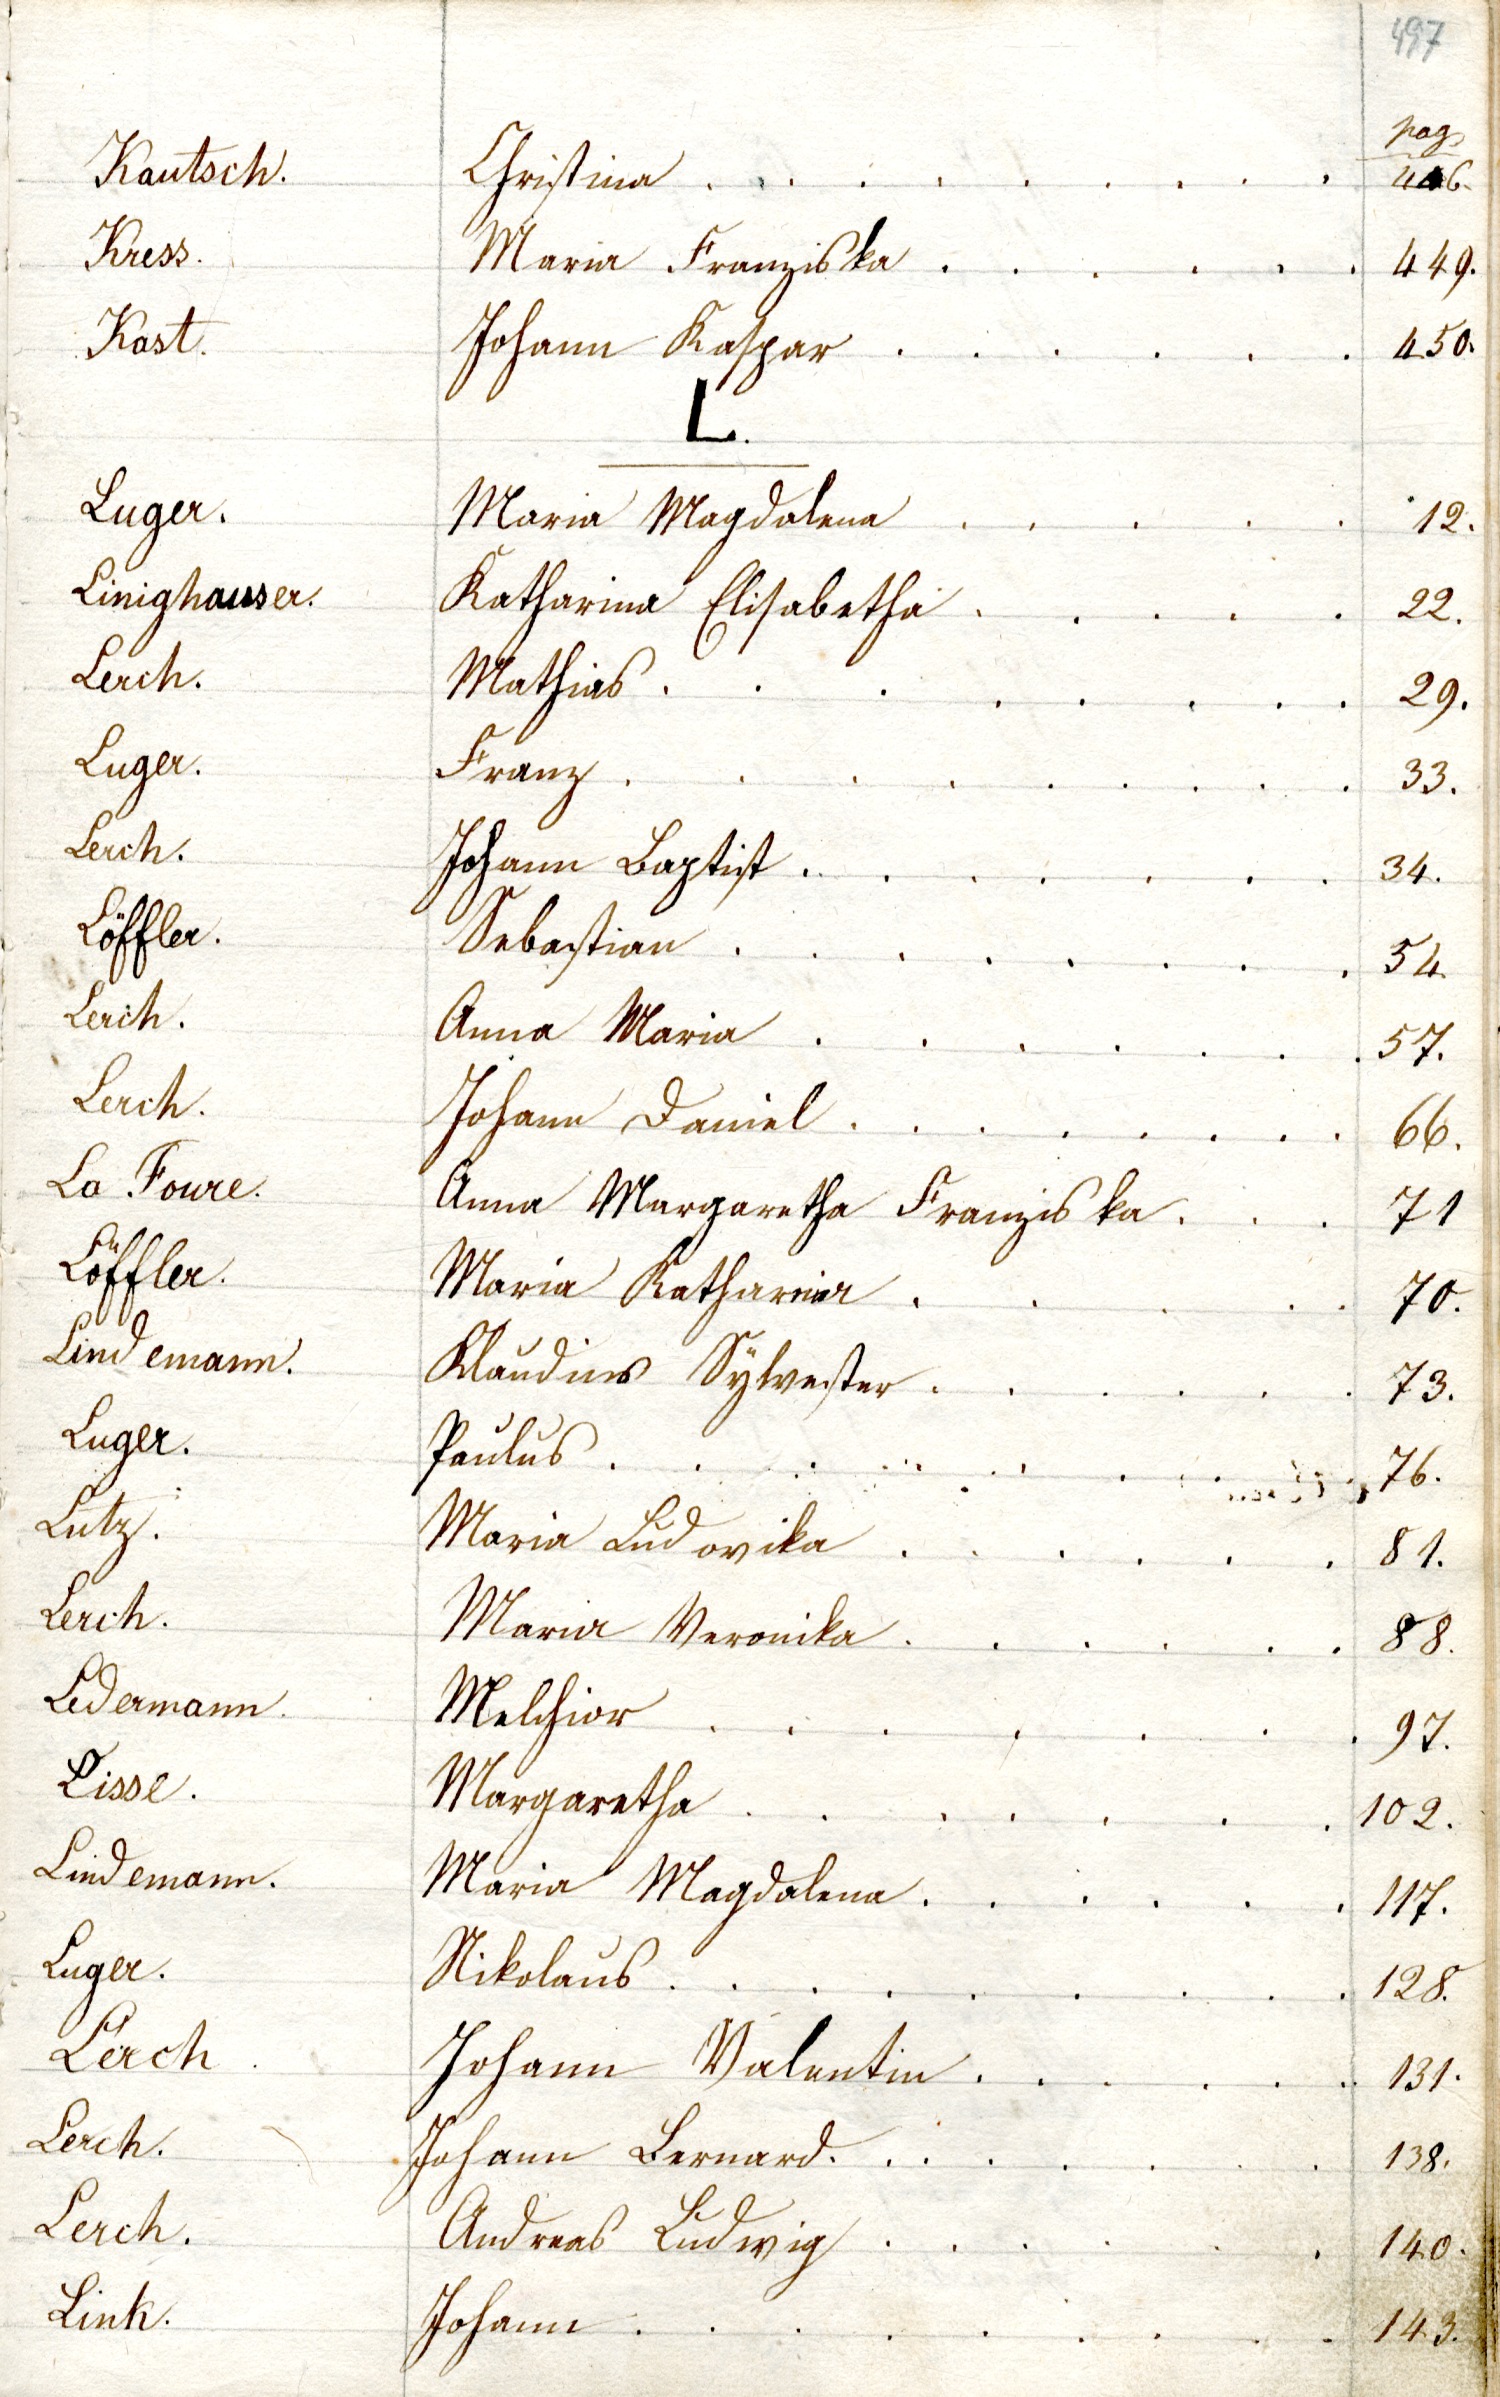 497
pag.
Kautsch. Christina . . . . . . . . . 446.
Kress. Maria Franziska . . . . . . 449.
Kast. Johann Kaspar . . . . . . 450.
L.
Luger. Maria Magdalena . . . . . 12.
Linighauser. Katharina Elisabetha . . . . . 22.
Lerch. Mathias . . . . . . . . 29.
Luger. Franz . . . . . . . . . 33.
Lerch. Johann Baptist . . . . . . . 34.
Löffler. Sebastian . . . . . . . . 54.
Lerch. Anna Maria . . . . . . . 57.
Lerch. Johann Daniel . . . . . . . . 66.
La Foure. Anna Margaretha Franziska . . . 71
Löffler. Maria Katharina . . . . . 70.
Lindemann. Klaudius Sÿlvester . . . . . . 73.
Luger. Paulus . . . . . . . . 76.
Lutz. Maria Ludovika . . . . . . 81.
Lerch. Maria Veronika . . . . . . 88.
Ledermann. Melchior . . . . . . . 97.
Lisse. Margaretha . . . . . . . 102.
Lindemann. Maria Magdalena . . . . . . 117.
Luger. Nikolaus . . . . . . . . . 128.
Lerch. Johann Valentin . . . . . . 131.
Lerch. Johann Bernard . . . . . . . 138.
Lerch. Andreas Ludwig . . . . . . 140.
Link. Johann . . . . . . . . . 143.